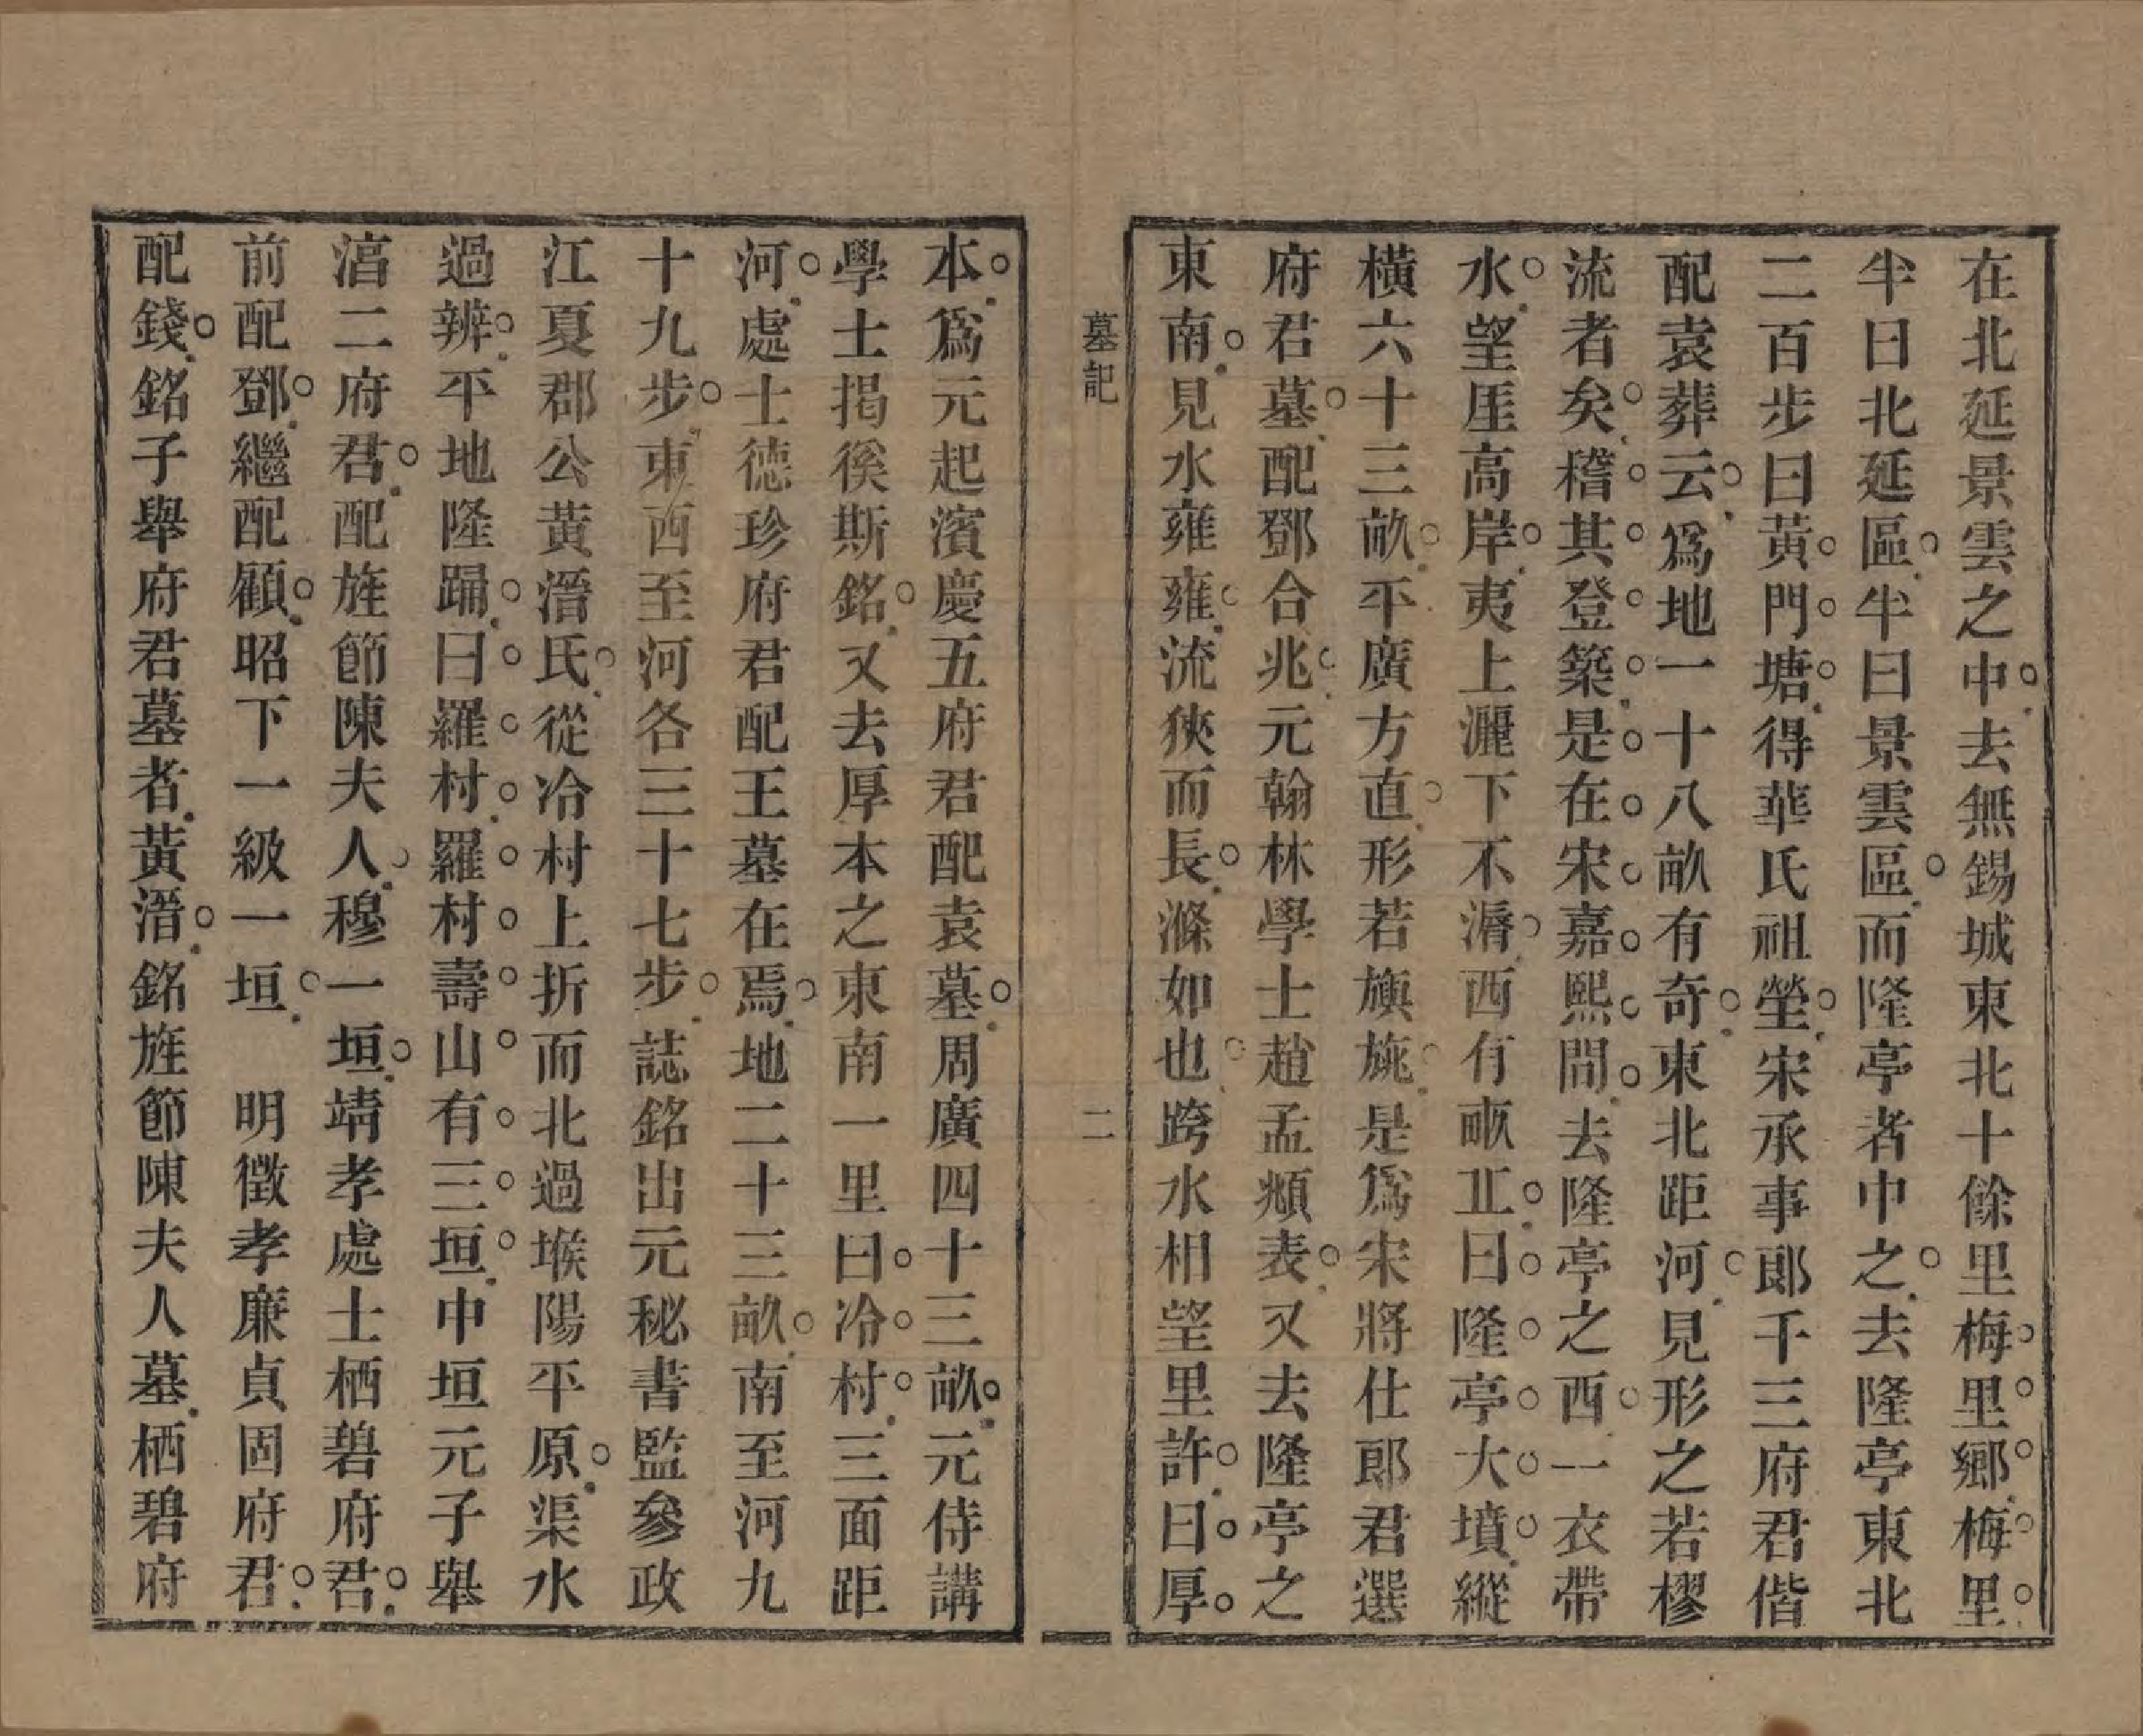 在北延景雲之中去無錫城東北十餘里梅里鄉梅里
半曰北延區半曰景雲區而隆亭者中之去隆亭東北
二百步曰黃門塘得華氏祖塋宋承事郎千三府君偕
配袁葬云爲地一十八畝有奇東北距河見形之若樛
流者矣稽其登築是在宋嘉熙間去隆亭之西一衣帶
水望厓高岸夷上灑下不漘西有畞正曰隆亭大墳縱
橫六十三畝平廣方直形若旟旐是爲宋將仕郎君選
府君墓配鄧合兆元翰林學士趙孟頫表又去隆亭之
東南見水雍雍流狹而長滌如也跨水相望里許曰厚
墓記
二
本爲元起濱慶五府君配袁墓周廣四十三畝元侍講
學士揭徯斯銘又去厚本之東南一里曰冷村三面距
河處士德珍府君配王墓在焉地二十三畝南至河九
十九步東西至河各三十七步誌銘出元秘書監參政
江夏郡公黃溍氏從冷村上折而北過堠陽平原渠水
過辨平地隆踊曰羅村羅村壽山有三垣中垣元子舉
滈二府君配旌節陳夫人穆一垣靖孝處士栖碧府君
前配鄧繼配顧昭下一級一垣　明徵孝廉貞固府君
配錢銘子舉府君墓者黃溍銘旌節陳夫人墓栖碧府